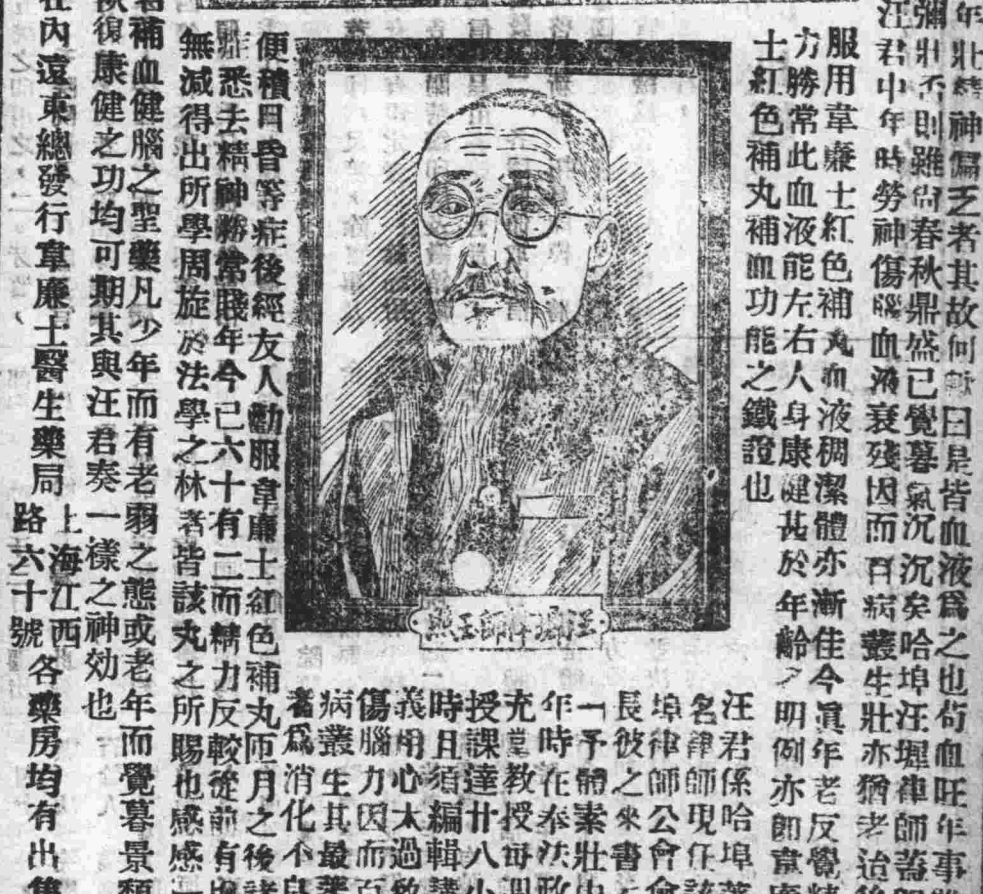 年壯精神偏乏者其故何歟曰是皆血液爲之也苟血旺年事
彌壯否則雖尙春秋鼎盛已覺暮氣沉沉矣哈埠汪堀律師蓋
汪君中年時勞神傷腦血液衰殘因而百病叢生壯亦猶老迨
服用韋廉士紅色補丸血液稠潔體亦漸佳今眞年老反覺精
力勝常此血液能左右人身康健甚於年齡之明例亦卽韋
士紅色補丸補血功能之鐵證也
汪堀律師玉照
汪君係哈埠著
名律師現任該
埠律師公會會
長彼之來書
「予體素壯中
年時在奉法政
充堂教授每日
授課達廿八小
時且須編輯講
義用心太過致
傷腦力因而百
病叢生其最著
者爲消化不良
便積日昏等症後經友人勸服韋廉士紅色補丸匝月之後諸
症悉去精神勝常賤年今已六十有二而精力反較從前有增
無減得出所學周旋於法學之林者皆該丸之所賜也感感
補血健腦之聖藥凡少年而有老弱之態或老年而覺暮景頹
復康健之功均可期其與汪君奏一樣之神効也
在內遠東總發行韋廉士醫生藥局
上海江西
路六十號
各藥房均有出售